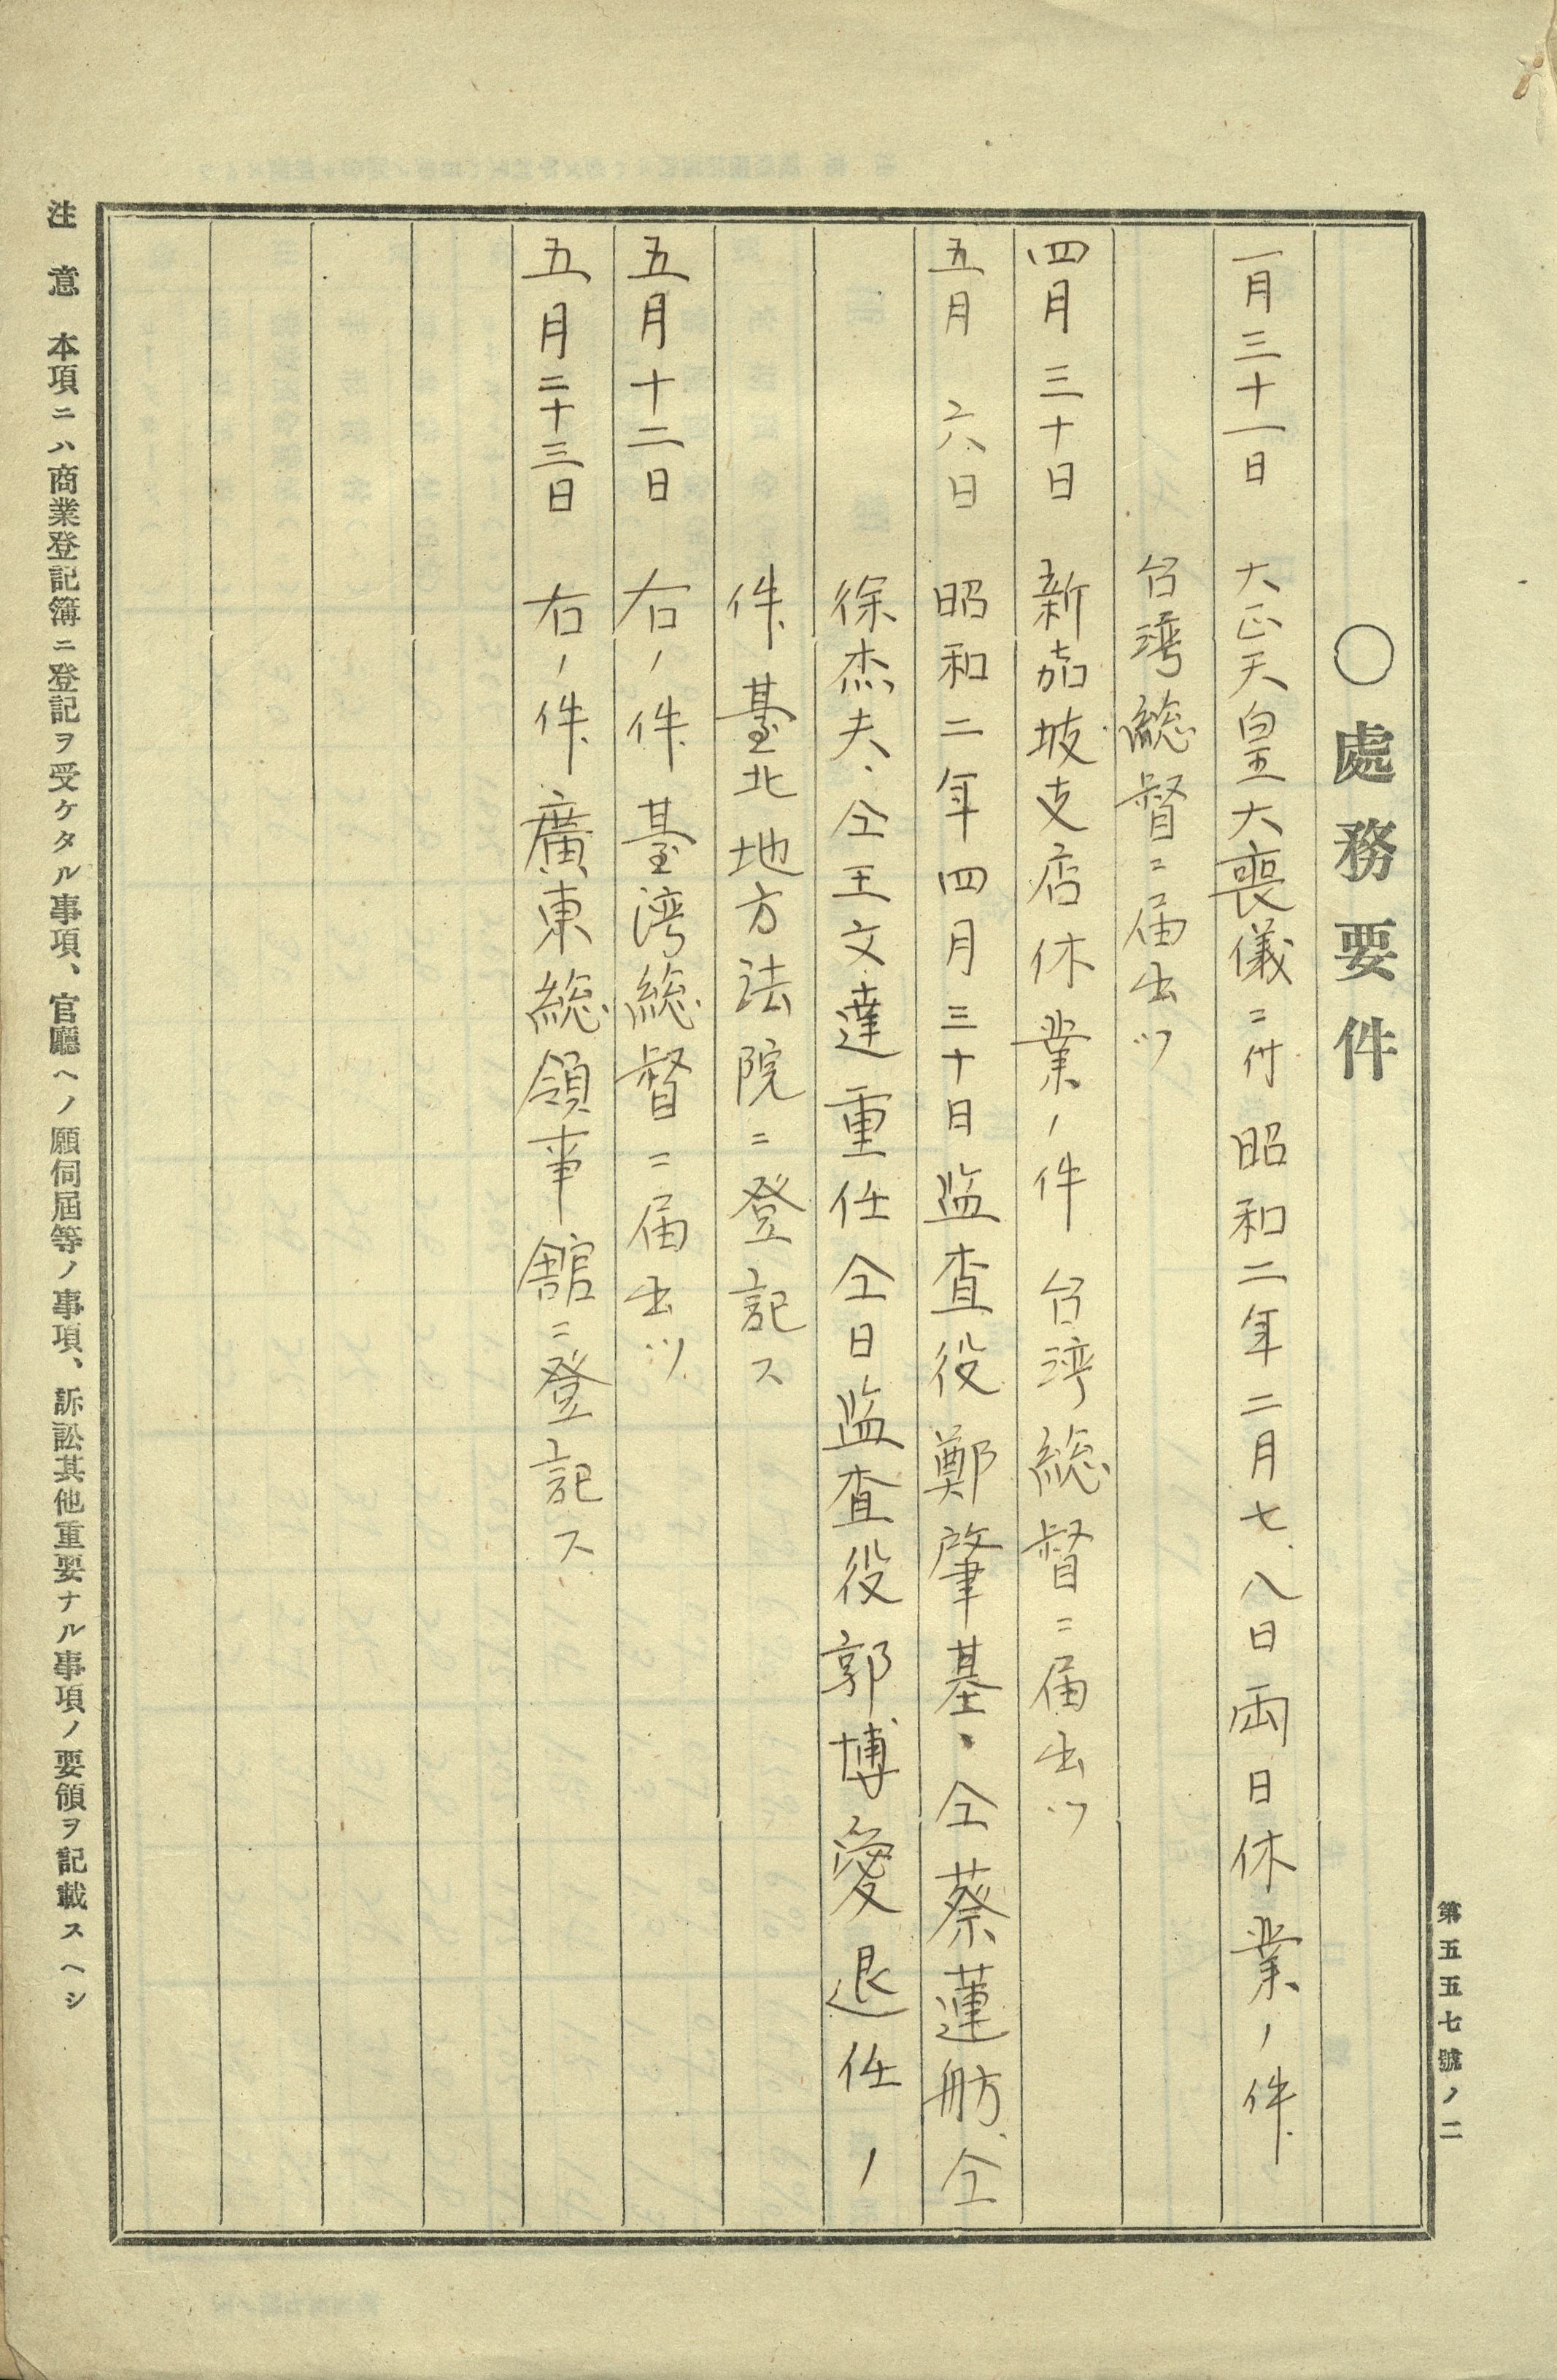 第五五七號ノ二
○處務要件
一月三十一日 大正天皇大喪儀ニ付昭和二年二月七、八日両日休業ノ件
台湾総督ニ届出ツ
四月三十日 新嘉坡支店休業ノ件 台湾総督ニ届出ツ
五月 六日 昭和二年四月三十日监査役鄭肇基、仝蔡蓮舫、仝
徐杰夫、仝王文達重任仝日监査役郭博愛退任ノ
件、臺北地方法院ニ登記ス
五月十二日 右ノ件 臺湾総督ニ届出ツ
五月二十三日 右ノ件 廣東総領事舘ニ登記ス
注意 本項ニハ商業登記簿ニ登記ヲ受ケタル事項、官廳ヘノ願伺屆等ノ事項、訴訟其他重要ナル事項ノ要領ヲ記載スヘシ